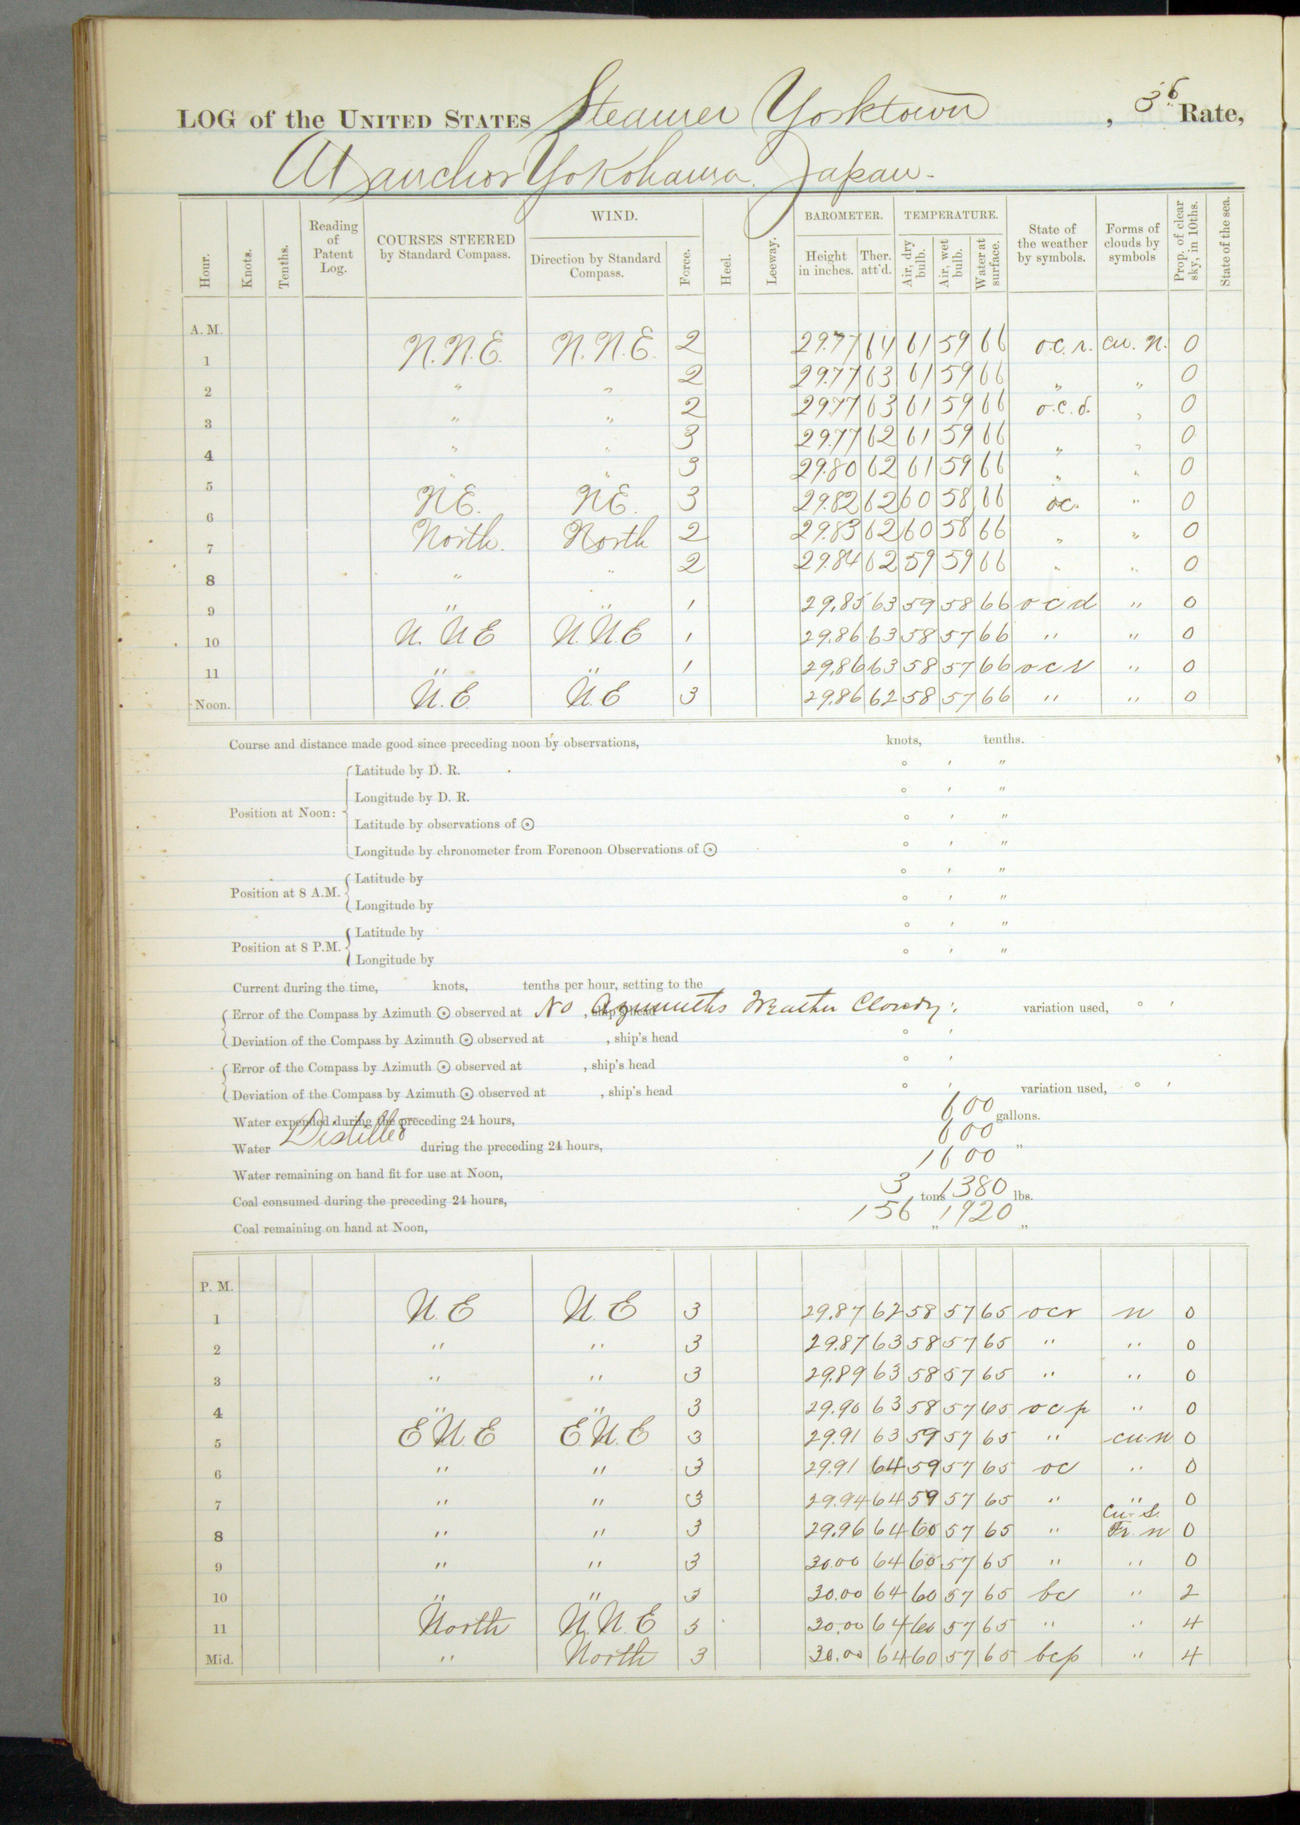 LOG of the UNITED STATES Steamer Yorktown, 3d Rate,
At anchor Yokohama Japan.
Hour. Knots. Tenths. Reading of Patent Log. COURSES STEERED by Standard Compass. WIND. Direction by Standard Compass. Force. Heel. Leeway. BAROMETER. Height in inches. Ther. att'd. TEMPERATURE. Air, dry bulb. Air, wet bulb. Water at surface. State of the weather by symbols. Forms of clouds by symbols Prop. of clear sky, in 10ths. State of the sea.
A. M.
1 N.N.E. N.N.E. 2 29.77 64 61 59 66 o.c.r. cu. n. 0
2 " " 2 29.77 63 61 59 66 " " 0
3 " " 2 29.77 63 61 59 66 o.c.d. " 0
4 " " 3 29.77 62 61 59 66 " " 0
5 " " 3 29.80 62 61 59 66 " " 0
6 NE. NE. 3 29.82 62 60 58 66 oc. " 0
7 North. North 2 29.83 62 60 58 66 " " 0
8 " " 2 29.84 62 59 59 66 " " 0
9 " " 1 29.85 63 59 58 66 ocd " 0
10 N. NE N. N. E 1 29.86 63 58 57 66 " " 0
11 " " 1 29.86 63 58 57 66 ocr " 0
Noon. N. E. N. E 3 29.86 62 58 57 66 " " 0
Course and distance made good since preceding noon by observations, knots, tenths.
Latitude by D. R. ° ′ ″
Longitude by D. R. ° ′ ″
Position at Noon:
Latitude by observations of ☉ ° ′ ″
Longitude by chronometer from Forenoon Observations of ☉ ° ′ ″
Position at 8 A.M. Latitude by ° ′ ″
Longitude by ° ′ ″
Position at 8 P.M. Latitude by ° ′ ″
Longitude by ° ′ ″
Current during the time, knots, tenths per hour, setting to the
Error of the Compass by Azimuth ☉ observed at , ship's head No Azimuths Weather Cloudy. variation used, ° ′
Deviation of the Compass by Azimuth ☉ observed at , ship's head ° ′
Error of the Compass by Azimuth ☉ observed at , ship's head ° ′
Deviation of the Compass by Azimuth ☉ observed at , ship's head ° ′ variation used, ° ′
Water expended during the preceding 24 hours, 600 gallons.
Water Distilled during the preceding 24 hours, 600 "
Water remaining on hand fit for use at Noon, 1600
Coal consumed during the preceding 24 hours, 3 tons 1380 lbs.
Coal remaining on hand at Noon, 156 " 1920 "
P. M.
1 N. E N. E 3 29.87 62 58 57 65 ocr n 0
2 " " 3 29.87 63 58 57 65 " " 0
3 " " 3 29.89 63 58 57 65 " " 0
4 " " 3 29.90 63 58 57 65 ocp " 0
5 E N. E E. N. E 3 29.91 63 59 57 65 " cu-n 0
6 " " 3 29.91 64 59 57 65 oc " 0
7 " " 3 29.94 64 59 57 65 " " 0
8 " " 3 29.96 64 60 57 65 " cu-s. n 0
9 " " 3 30.00 64 60 57 65 " " 0
10 " " 3 30.00 64 60 57 65 bc " 2
11 North N. N. E 3 30.00 64 60 57 65 " " 4
Mid. " North 3 30.00 64 60 57 65 bcp " 4